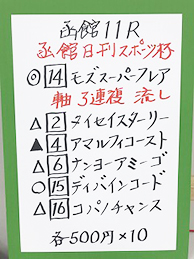 函館11R
函館日刊スポーツ杯
◎14 モズスーパーフレア
軸 3連複 流し
△2 メイセイスターリー
▲4 アマルフィコースト
△6 ナンヨーアミーゴ
○15 ディバインコード
△16 コパノチャンス
各500円×10